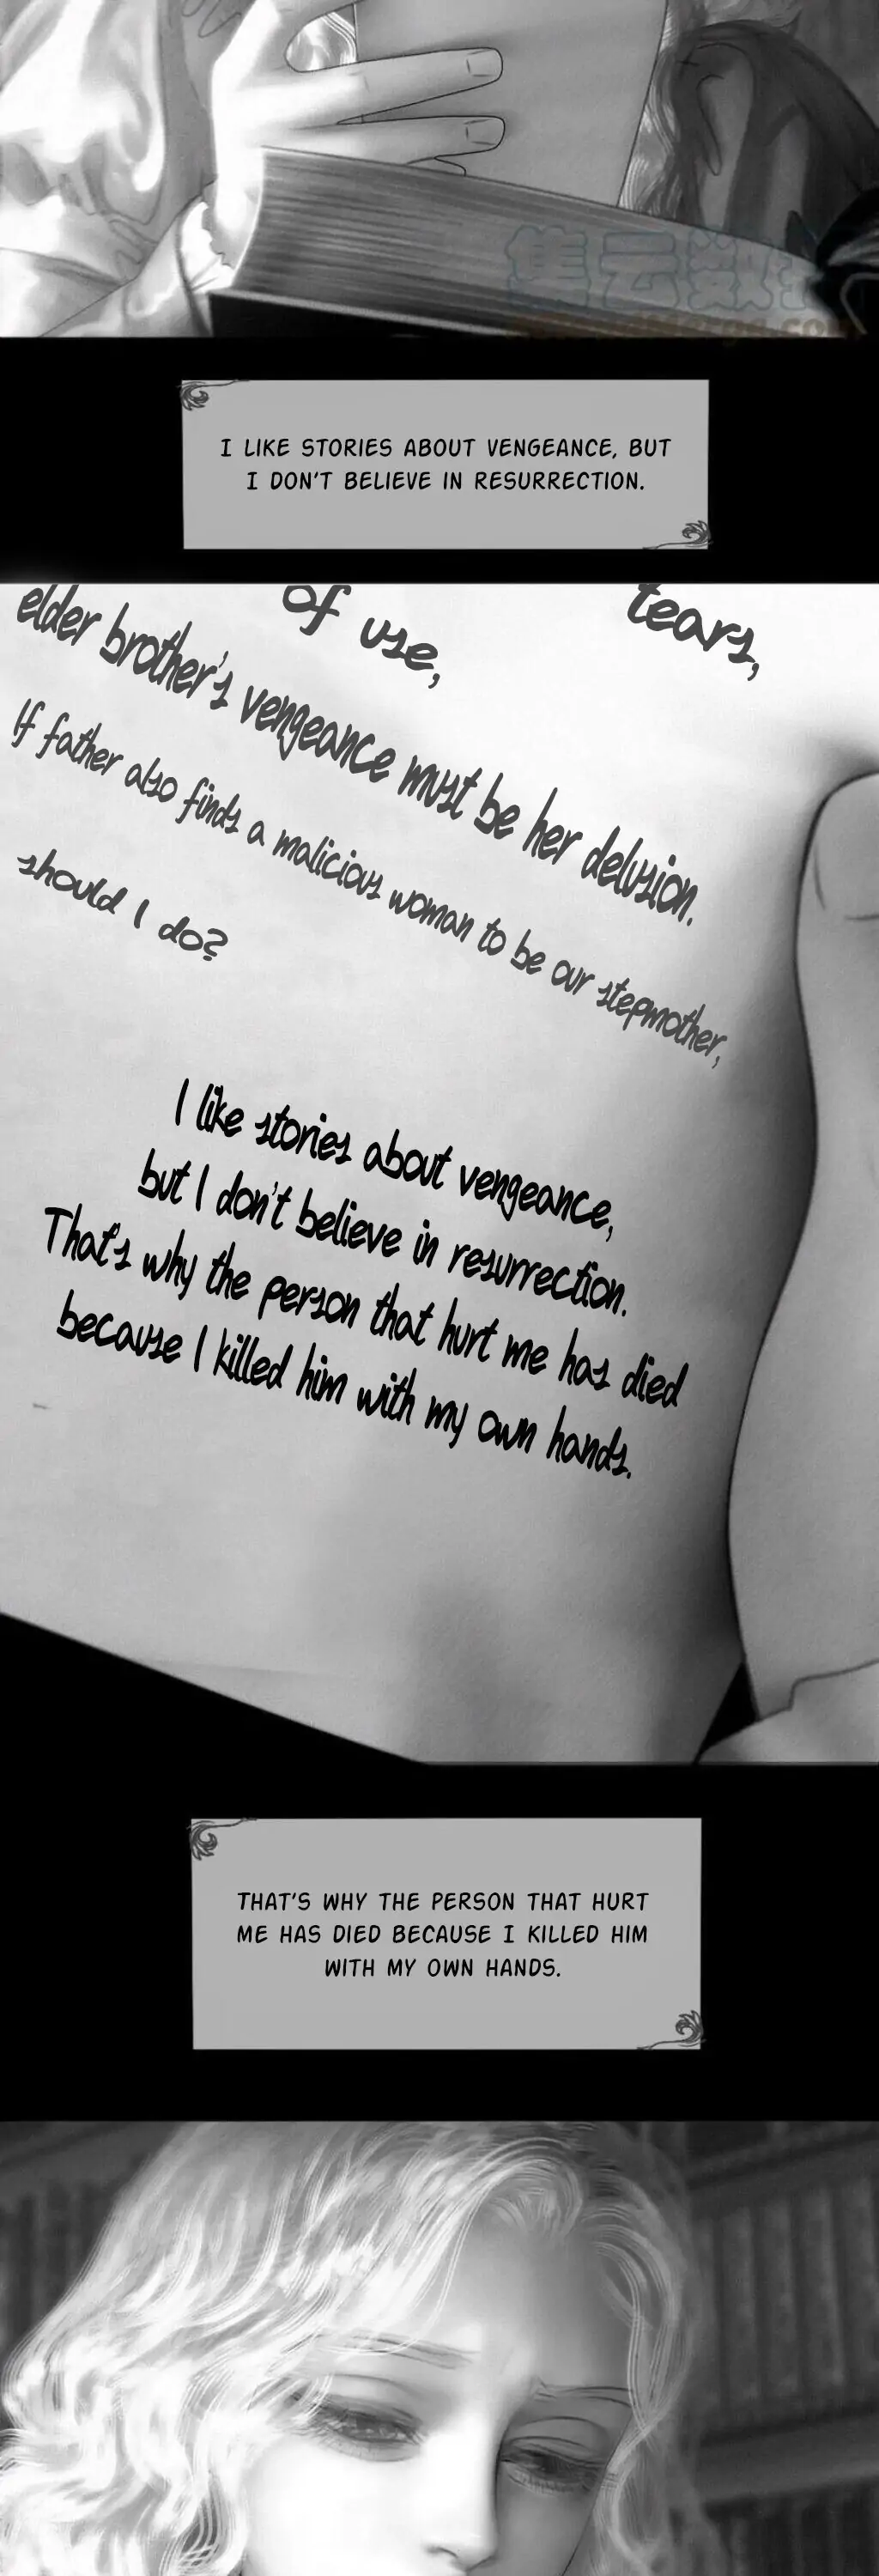 集云数
I LIKE STORIES ABOUT VENGEANCE, BUT
I DON'T BELIEVE IN RESURRECTION.
of use,
tears,
elder brother's vengeance must be her delusion.
If father also finds a malicious woman to be our stepmother,
should I do?
I like stories about vengeance,
but I don't believe in resurrection.
That's why the person that hurt me has died
because I killed him with my own hands.
THAT'S WHY THE PERSON THAT HURT
ME HAS DIED BECAUSE I KILLED HIM
WITH MY OWN HANDS.